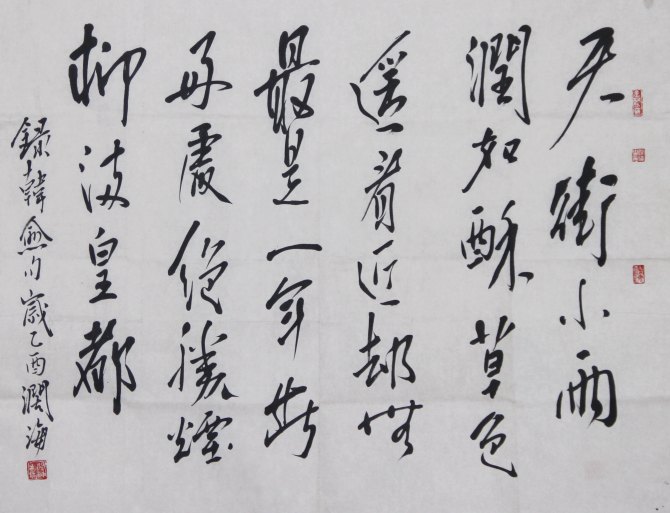 天街小雨
潤如酥草色
遥看近却無
最是一年春
好處絕勝煙
柳滿皇都
錄韓愈句歲乙酉海